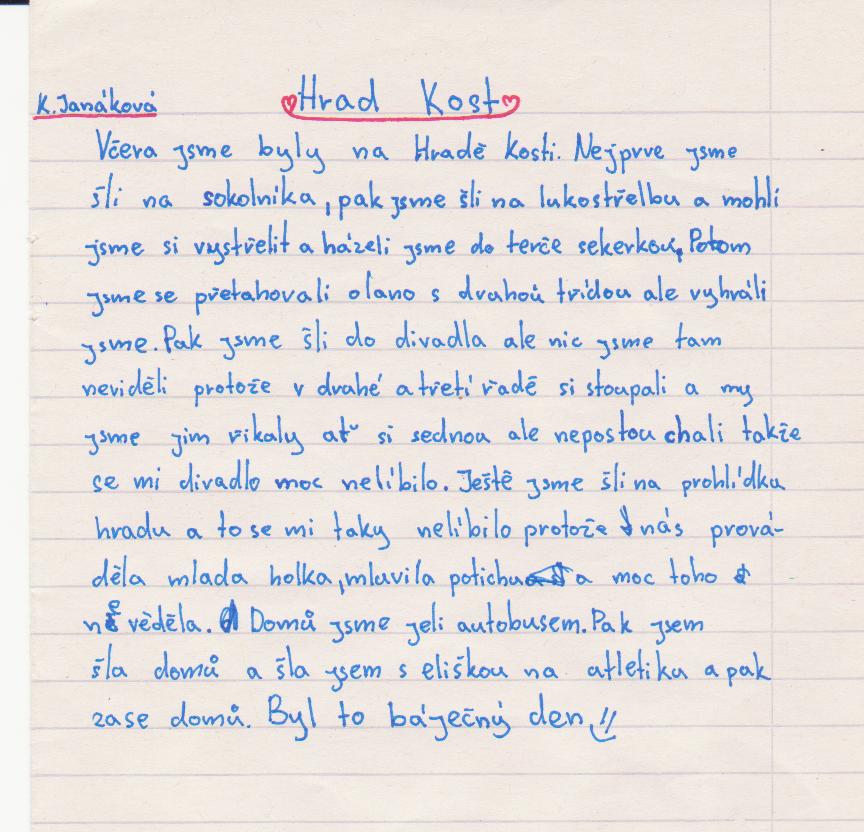 K. Janáková
Hrad Kost
Včera jsme byly na Hradě Kosti. Nejprve jsme
šli na sokolníka, pak jsme šli na lukostřelbu a mohli
jsme si vystřelit a házeli jsme do terče sekerkou. Potom
jsme se přetahovali olano s druhoů třídou ale vyhráli
jsme. Pak jsme šli do divadla ale nic jsme tam
neviděli protože v druhé a třetí řadě si stoupali a my
jsme jim říkaly ať si sednou ale neposlouchali takže
se mi divadlo moc nelíbilo. Ještě jsme šli na prohlídku
hradu a to se mi taky nelíbilo protože nás prová-
děla mlada holka, mluvila potichu a moc toho
ne věděla. Domů jsme jeli autobusem. Pak jsem
šla domů a šla jsem s eliškou na atletiku a pak
zase domů. Byl to báječný den!!